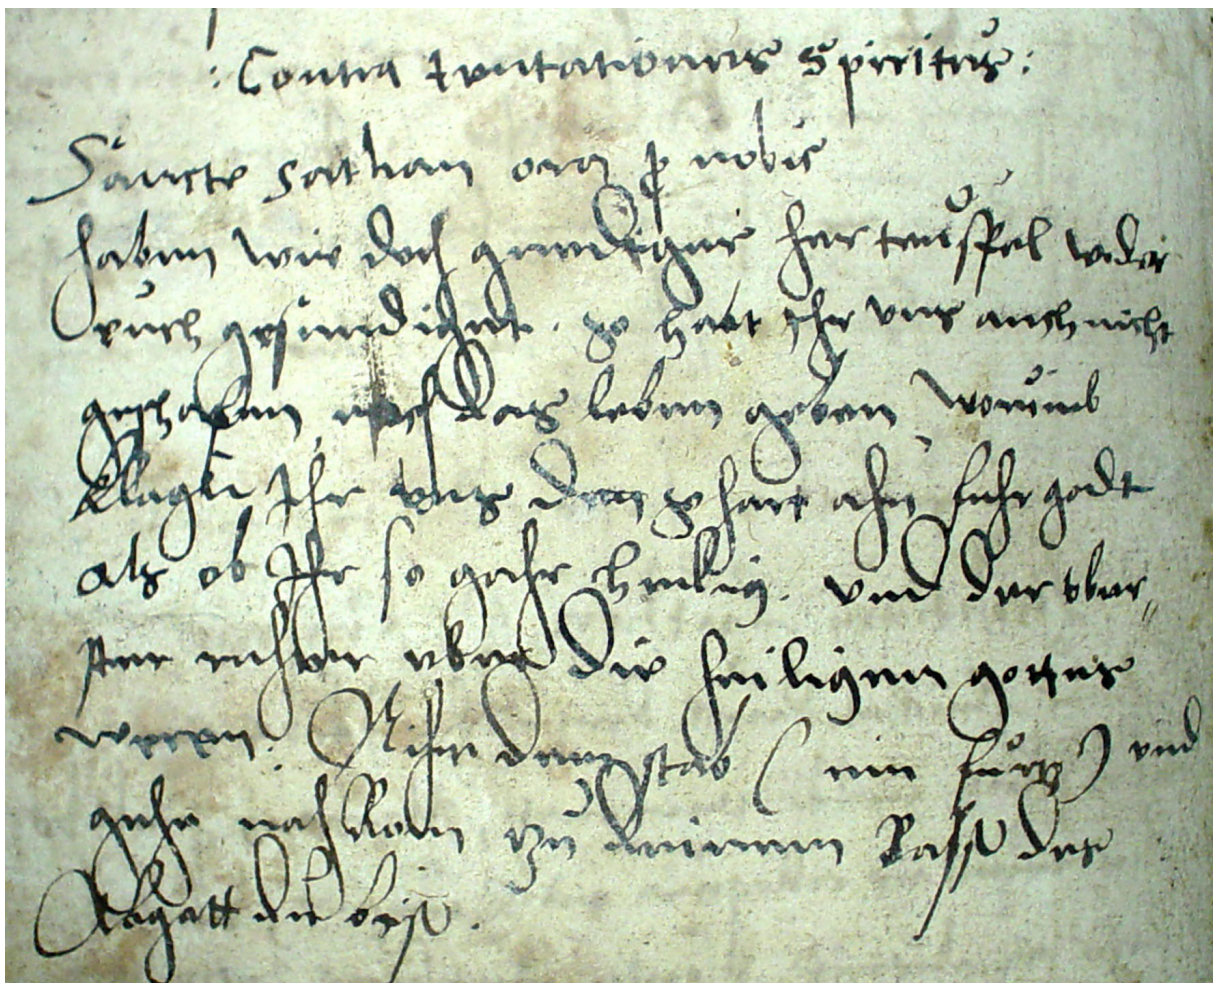 : Contra tentationes Spiritus :
Sancte Sathan ora p nobis
haben wir doch gnediger her teuffel wider
euch gesundiget. so habt Ihr uns auch nicht
geschafen noch das leben geben, worumb
klagen Ihr uns den so hart ahn fuhr godt
als ob Ihr so gahr heilig. und der ober„
ster richter uber die heiligen gottes
weren. Nihm den stab ( ein furz ) und
gehe nach Rom zu deinem Bapst des
Abgott du bist.